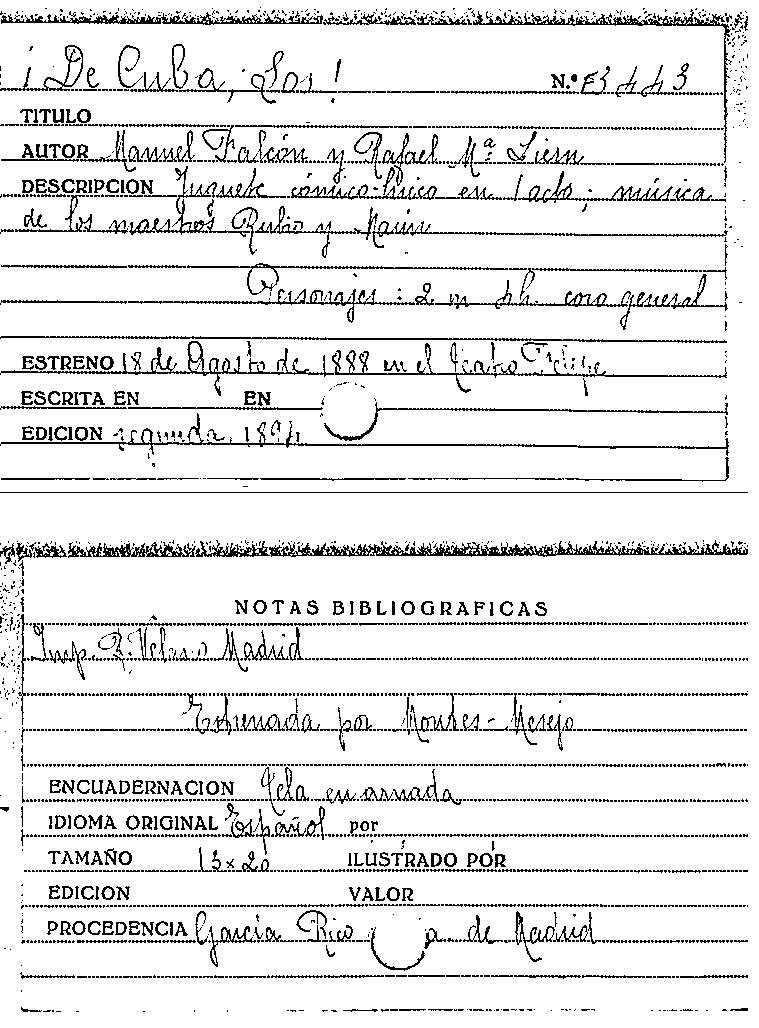 ¡De Cuba, Los! N.º E3443
TITULO
AUTOR Manuel Falcón y Rafael Mª Liern
DESCRIPCION Juguete cómico-lírico en 1 acto; música
de los maestros Rubio y Marín
Personajes: 2 m 4h. coro general
ESTRENO 18 de Agosto de 1888 en el teatro Felipe
ESCRITA EN EN
EDICION segunda, 1894
NOTAS BIBLIOGRAFICAS
Imp. R. Velasco Madrid
Estrenada por Montes-Mesejo
ENCUADERNACION Tela enarmada
IDIOMA ORIGINAL Español por
TAMAÑO 13x20 ILUSTRADO POR
EDICION VALOR
PROCEDENCIA García Rico de Madrid